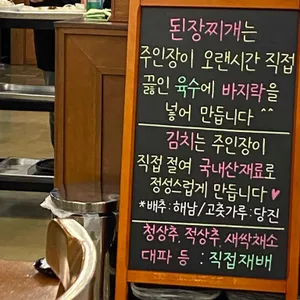 된장찌개는
주인장이 오랜시간 직접
끓인 육수에 바지락을
넣어 만듭니다 ^^
김치는 주인장이
직접 절여 국내산재료로
정성스럽게 만듭니다♥
*배추:해남/고춧가루:당진
청상추, 적상추, 새싹채소
대파 등 : 직접재배